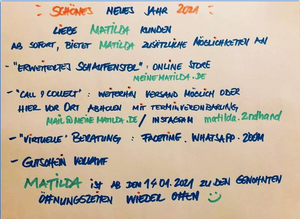 SCHÖNES NEUES JAHR 2021
LIEBE MATILDA KUNDEN
AB SOFORT, BIETET MATILDA ZUSÄTZLICHE MÖGLICHKEITEN AN
- "ERWEITERTES SCHAUFENSTER": ONLINE STORE
MEINEMATILDA.DE
- "CALL & COLLECT": WEITERHIN VERSAND MÖGLICH ODER
HIER VOR ORT ABHOLEN MIT TERMINVEREINBARUNG,
MAIL@MEINEMATILDA.DE / INSTAGRAM matilda.2ndhand
- "VIRTUELLE" BERATUNG: FACETIME. WHATSAPP. ZOOM
- GUTSCHEIN
MATILDA IST AB DEN 14.01.2021 ZU DEN GEWOHNTEN
ÖFFNUNGSZEITEN WIEDER OFFEN